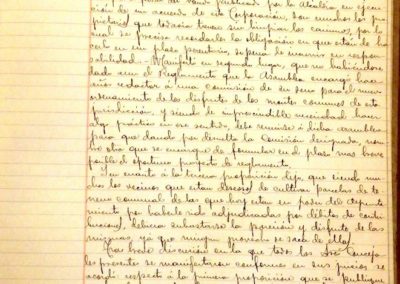 ción de un acuerdo de la Corporación, son muchos los pro-
pietarios que todavía tienen sin limpiar los caminos, por lo
cual se precisa recordarles la obligación en que están de ha-
cerlo en un plazo perentorio, so pena de incurrir en respon-
sabilidad. - Manifestó en segundo lugar, que no habiéndose
dado aun el Reglamento que la Asamblea encargó hace
años redactar a una comisión de su seno para el
ordenamiento de los disfrutes de los montes comunes de esta
jurisdicción, y siendo de imprescindible necesidad hacer
algo práctico en ese sentido, debe reunirse a dicha asamblea
para que dando por disuelta la Comisión designada, nom-
bre otra que se encargue de formular en el plazo mas breve
posible el oportuno proyecto de reglamento.
Y en cuanto á la tercera proposición dijo, que siendo mu-
chos los vecinos que están deseosos de cultivar parcelas de te-
rreno comunal de las que hoy estan en poder del Ayunta-
miento por haberle sido adjudicadas por débitos de contri-
buciones, debiera subastarse la posesion y disfrute de las
mismas, ya que ningun provecho se saca de ellas.
breve discusión en la que todos los Sres Conceja-
les presentes se manifestaron conformes en sus juicios se
acordó respecto á la primera proposición que se publique